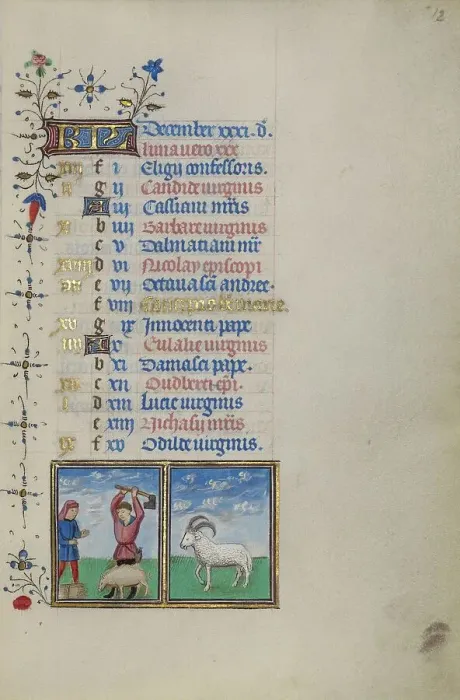 12
KL December xxxi. d.
luna uero xxx
xiii f i Eligii confessoris.
ii g ij Candide uirginis
A iij Cassiani mris
x b iiij Barbare uirginis
c v Dalmatiani mr
xviii d vi Nicolay episcopi
vii e vij Octaua sci andree.
f viij Conceptio marie.
xv g ix Innocenti pape
iiij A x Eulalie uirginis
b xi Damasci pape.
xii c xii Oudberti epi.
i d xiii Lucie uirginis
e xiiij Nichasii mris
ix f xv Odilde uirginis.